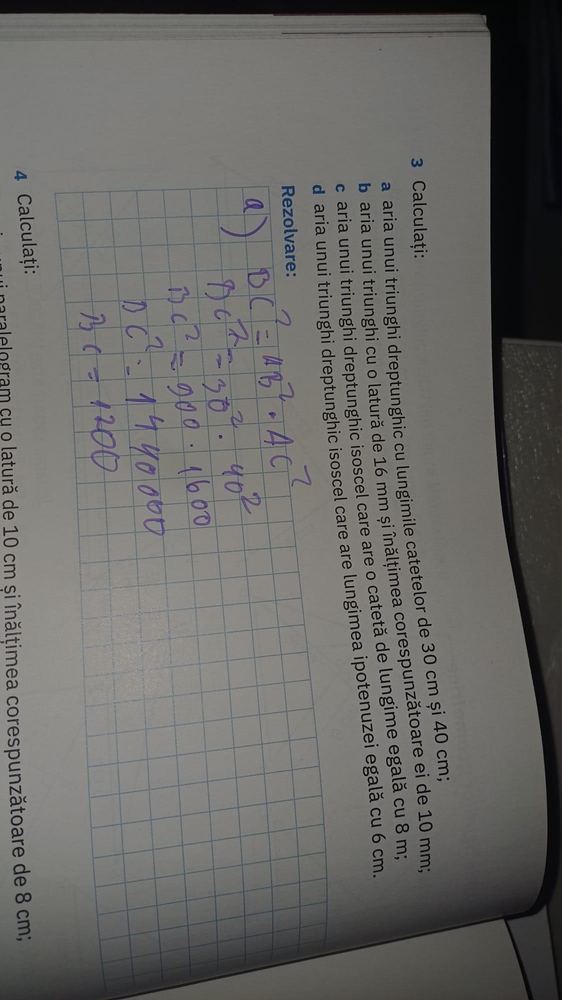 3 Calculați:
a aria unui triunghi dreptunghic cu lungimile catetelor de 30 cm și 40 cm;
b aria unui triunghi cu o latură de 16 mm și înălțimea corespunzătoare ei de 10 mm;
c aria unui triunghi dreptunghic isoscel care are o catetă de lungime egală cu 8 m;
d aria unui triunghi dreptunghic isoscel care are lungimea ipotenuzei egală cu 6 cm.
Rezolvare:
a) BC² = AB² · AC²
BC² = 30² · 40²
BC² = 900 · 1600
BC² = 1440000
BC = 1200
4 Calculați:
paralelogram cu o latură de 10 cm și înălțimea corespunzătoare de 8 cm;